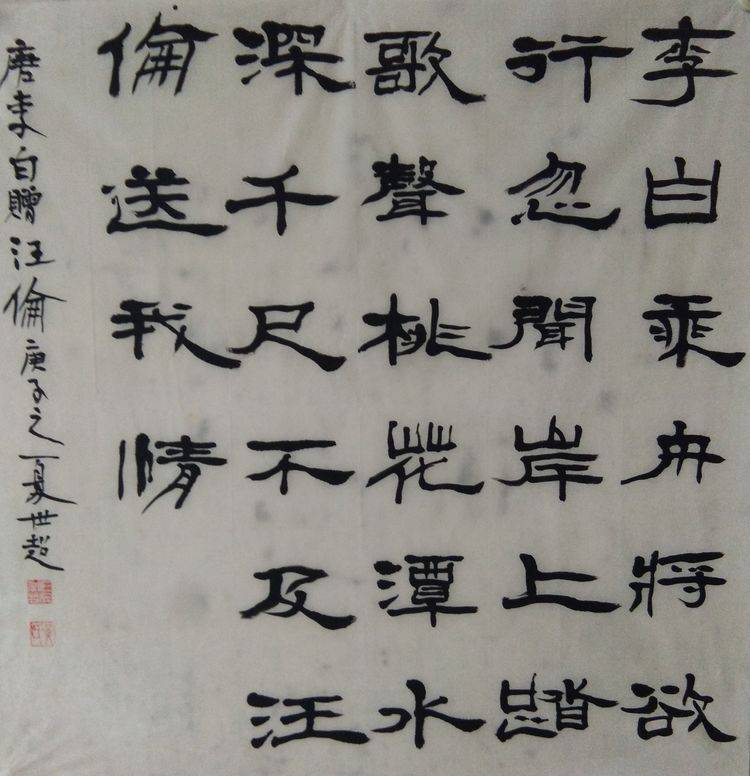 李白乘舟將欲
行忽聞岸上踏
歌聲桃花潭水
深千尺不及汪
倫送我情
唐李白贈汪倫庚子之夏世超